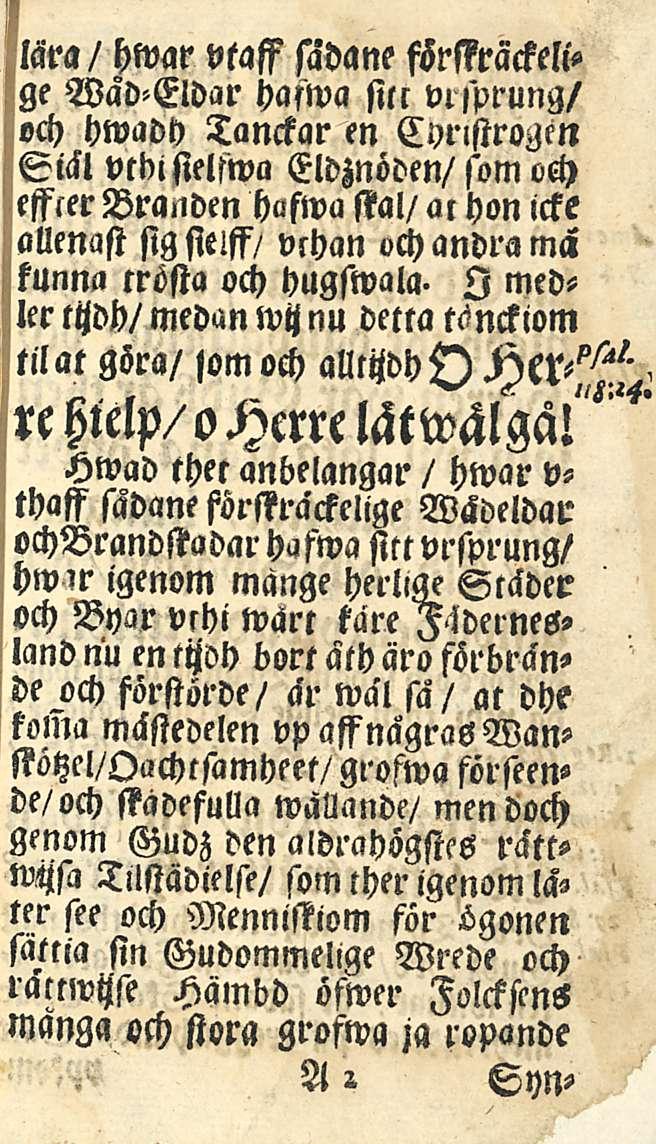 lära / hwar vtaff sådane förskräckeli-
ge Wåd-Eldar hafwa sitt vrsprung/
och hwadh Tanckar en Christrogen
Siäl vthi sielfwa Eldznöden/ som och
effter Branden hafwa skal/ at hon icke
allenast sig sielff/ vthan och andra må
kunna trösta och hugswala. J med-
ler tijdh/ medan wij nu detta tänckiom
til at göra/ som och alltijdh O Her-
Psal. 118:24.
re hielp/ o Herre låt wäl gå!
Hwad thet anbelangar / hwar v-
thaff sådane förskräckelige Wådeldar
och Brandskadar hafwa sitt vrsprung/
hwar igenom månge herlige Städer
och Byar vthi wårt käre Fädernes-
land nu en tijdh bort åth äro förbrän-
de och förstörde / är wäl så / at dhe
kom̃a mästedelen vp aff någras Wan-
skötzel/ Oachtsamheet/ grofwa förseen-
de/ och skadefulla wållande/ men doch
genom Gudz den aldrahögstes rätt-
wijsa Tilstädielse/ som ther igenom lå-
ter see och Menniskiom för ögonen
sättia sin Gudommelige Wrede och
rättwijse Hämbd öfwer Folcksens
många och stora grofwa ja ropande
A 2 Syn-